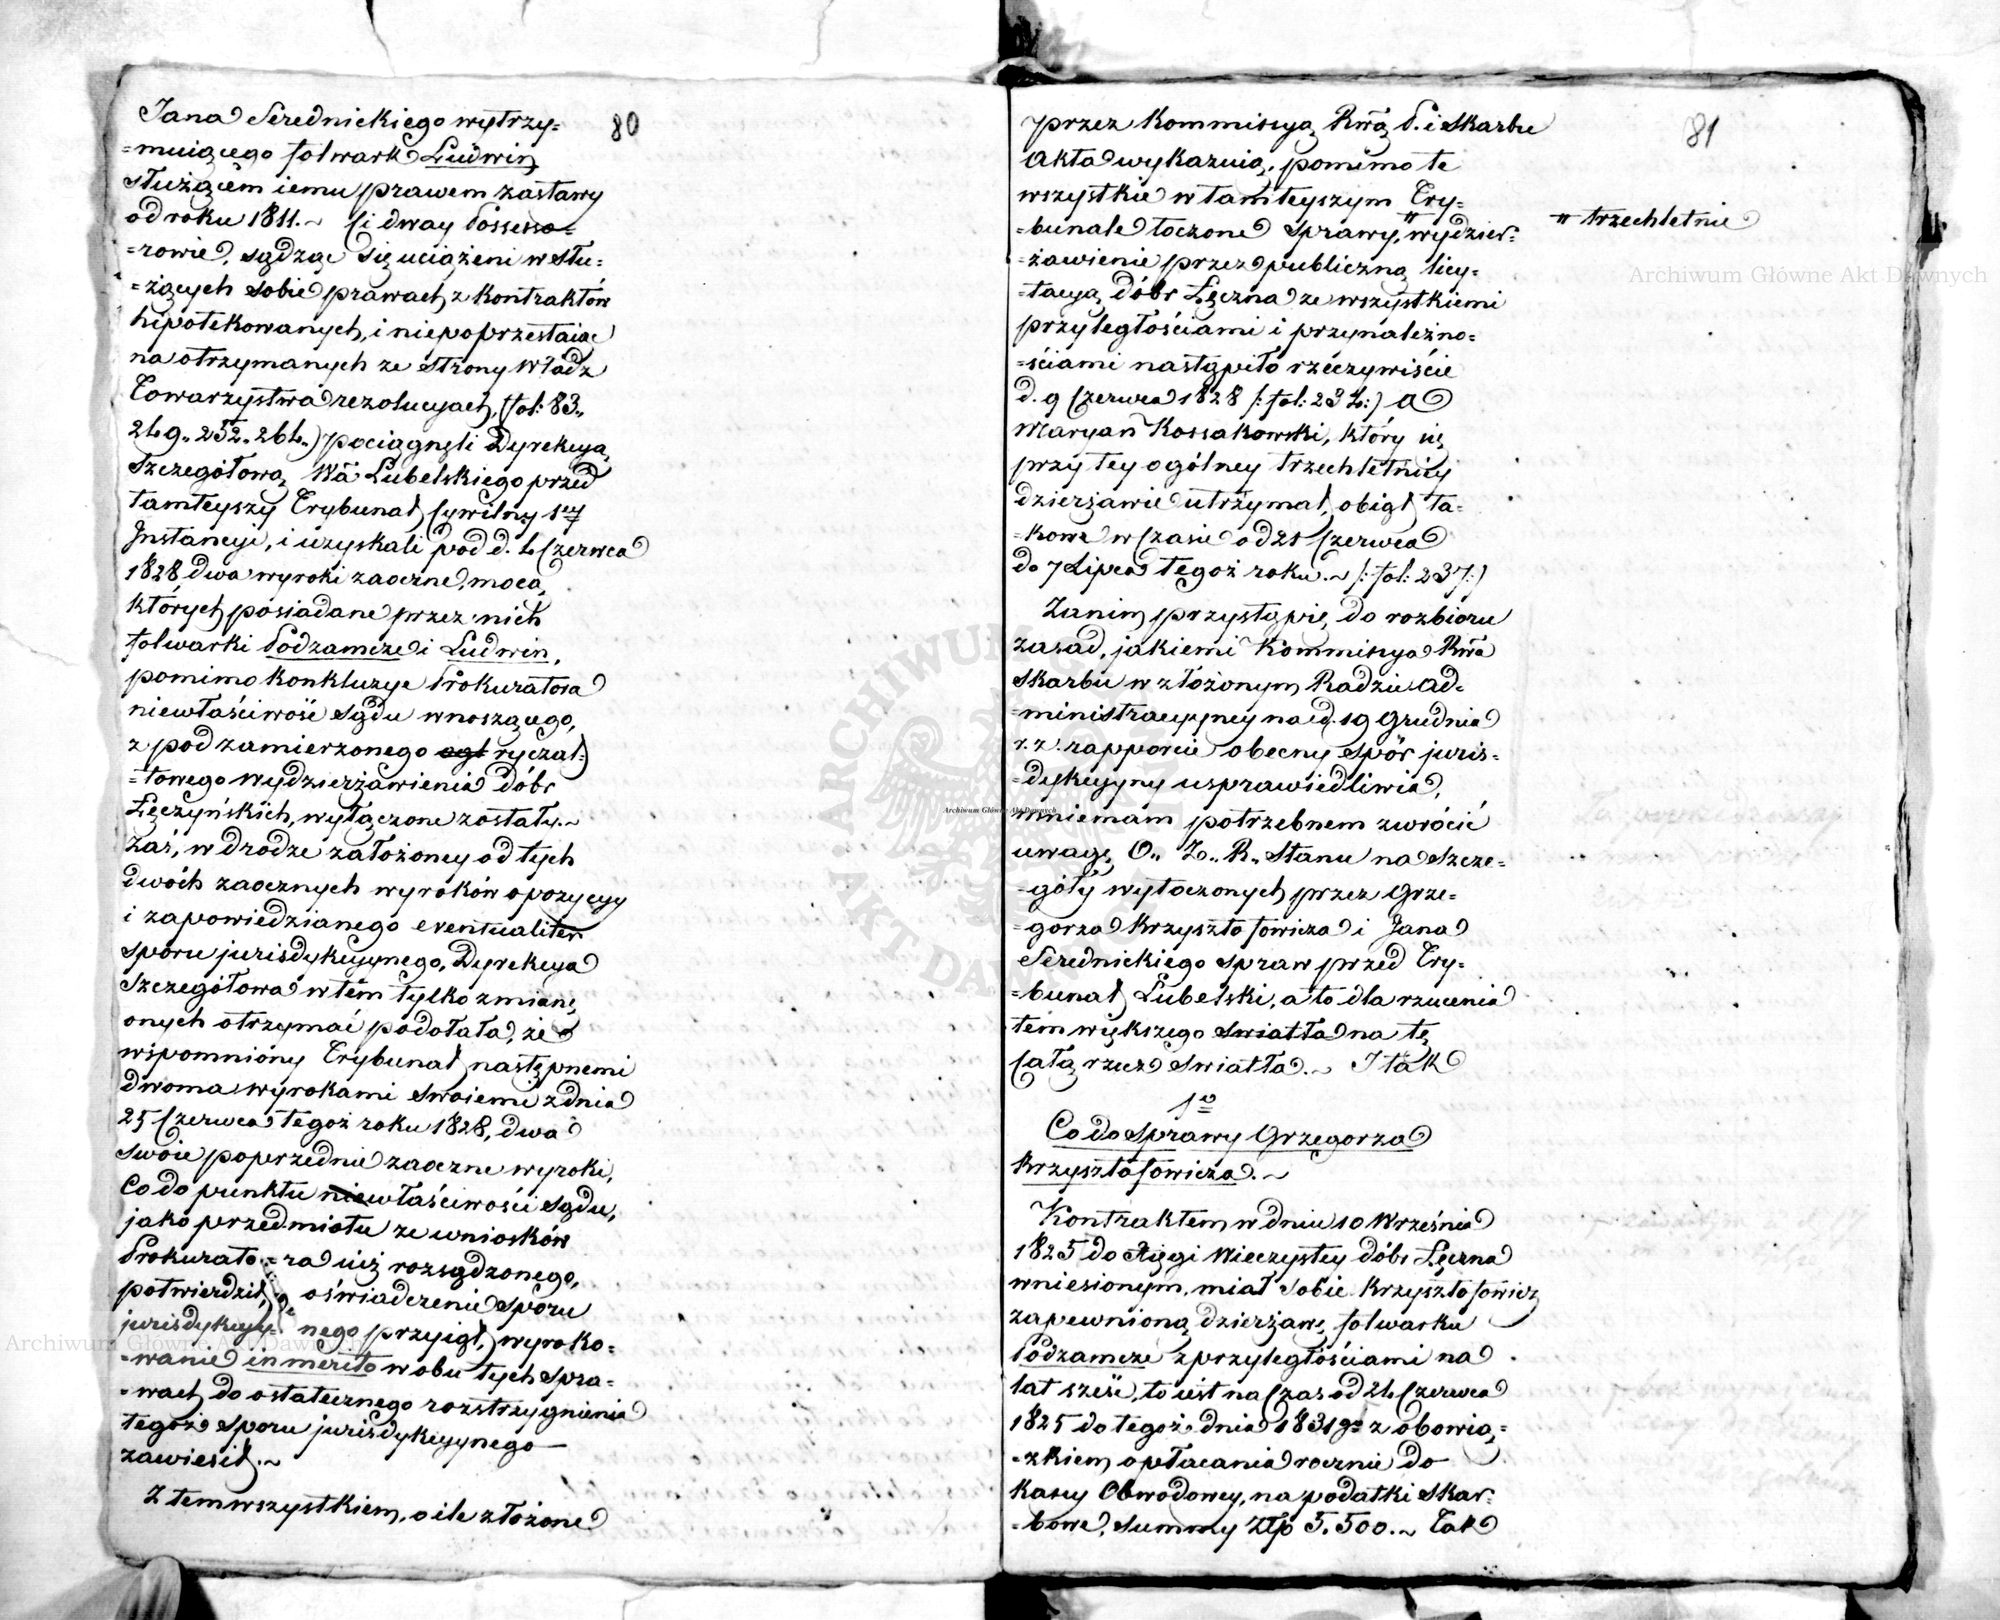 80
Jana Serednickiego wytrzy=
=muiącego folwark Ludwin,
służącem iemu prawem zastawy
od roku 1811.~ Ci dway Possesso=
=rowie, sądząc się uciążeni w słu=
=żących sobie prawach z kontraktów
hipotekowanych, i niepoprzestaiąc
na otrzymanych ze strony Władz
Towarzystwa rezolucyach, (fol: 83.,
249.. 252.. 264..) pociągnęli Dyrekcyą
Szczegółową Wa Lubelskiego przed
tamteyszy Trybunał Cywilny 1ey
Instancyi, i uzyskali pod d. 4 Czerwca
1828, dwa wyroki zaoczne, mocą
których posiadane przez nich
folwarki Podzamcze i Ludwin,
pomimo konkluzye Prokuratora
niewłaściwość Sądu wnoszącego,
z pod zamierzonego ogl ryczał=
=towego wydzierżawienia dóbr
Łęczyńskich, wyłączone zostały.~
Zaś, w drodze założoney od tych
dwóch zaocznych wyroków opozycyy
i zapowiedzianego eventualiter
sporu jurisdykcyynego, Dyrekcya
Szczegółowa w tém tylko zmianę
onych otrzymać podołała, że
wspomniony Trybunał następnemi
dwoma wyrokami swoiemi z dnia
25 Czerwca tegoż roku 1828, dwa
swoie poprzednie zaoczne wyroki,
Co do punktu niewłaściwości Sądu,
jako przedmiotu ze wniosków
Prokurato=ra iuż rozsądzonego,
potwierdził, oświadczenie Sporu
jurisdykcyy=nego przyiął, wyroko=
=wanie in merito w obu tych Spra=
=wach do ostatecznego rozstrzygnienia
tegoż Sporu jurisdykcyynego
zawiesił.~
Z tem wszystkiem, o ile złożone
81
przez Kommissyą Rwą P. i Skarbu
Akta wykazuią, pomimo te
wszystkie w tamteyszym Try=
=bunale toczone Sprawy, " wydzier=
" trzechletnie
=żawienie przez publiczną licy=
=tacyą dóbr Łęczna ze wszystkiemi
przyległościami i przynależno=
=ściami nastąpiło rzeczywiście
d. 9 Czerwca 1828 /: fol: 234:) a
Maryan Kossakowski, który się
przy tey ogólney trzechletniey
dzierżawie utrzymał, obiął ta=
=kowe w Czasie od 21 Czerwca
do 7 Lipca tegoż roku.~ /: fol: 237:)
Zanim przystąpię do rozbioru
zasad, jakiemi Kommissya Rwa
Skarbu w złożonym Radzie Ad=
=ministracyyney na d. 19 Grudnia
r. z. rapporcie obecny spór juris=
=dykcyyny usprawiedliwia,
mniemam potrzebnem zwrócić
uwagę O.. Z.. R.. Stanu na szcze=
=góły wytoczonych przez Grze=
=gorza Krzysztofowicza i Jana
Serednickiego spraw przed Try=
=bunał Lubelski, a to dla rzucenia
tem większego Swiatła na tę
Całą rzecz Swiatła.~ I tak
1o
Co do Sprawy Grzegorza
Krzysztofowicza.~
Kontraktem w dniu 10 Września
1825 do Xięgi Wieczystey dóbr Łęczna
wniesionym, miał sobie Krzysztofowicz
zapewnioną dzierżawę folwarku
Podzamcze z przyległościami na
lat sześć, to iest na Czas od 24 Czerwca
1825 do tegoż dnia 1831go z obowią=
=zkiem opłacania rocznie do
Kassy Obwodowey, na podatki Skar=
=bowe, Summy Złp 5.500.~ Tak
Archiwum Główne Akt Dawnych
Archiwum Główne Akt Dawnych
Archiwum Główne Akt Dawnych